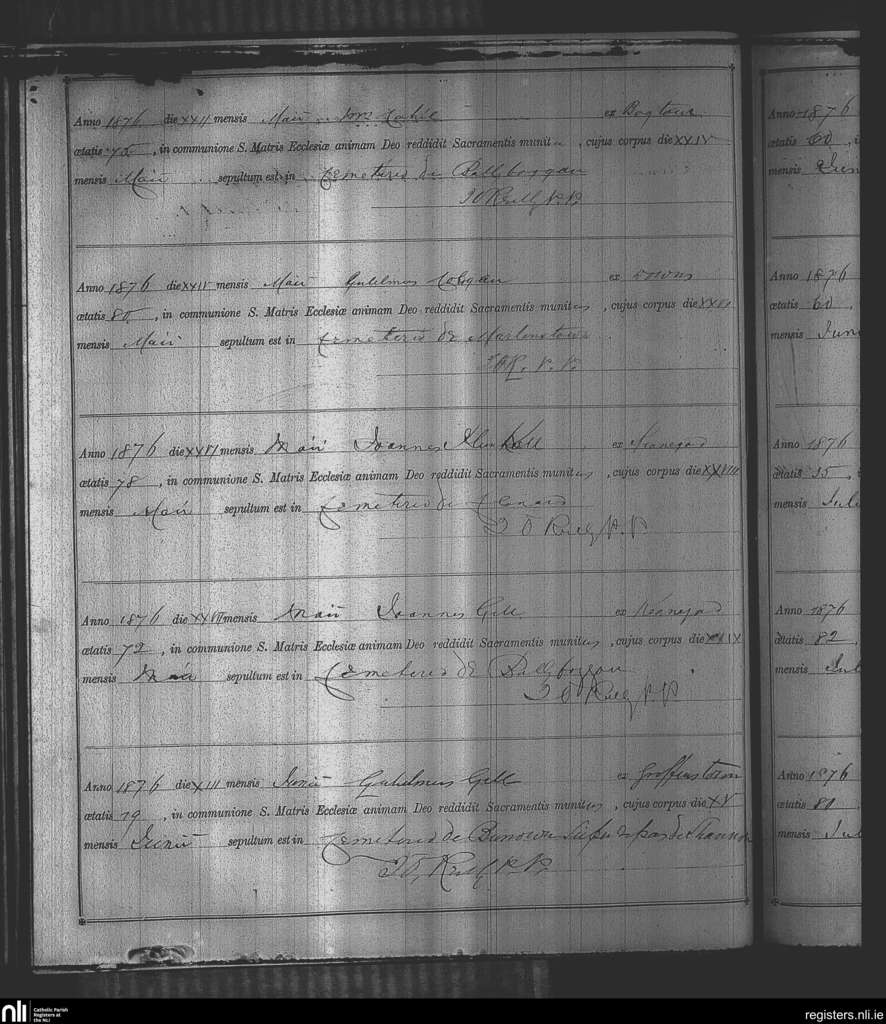 Anno 1876 die XXII mensis Maii Mrs Cahil ex Bogtown
ætatis 75, in communione S. Matris Ecclesiæ animam Deo reddidit Sacramentis munita, cujus corpus die XXIV
mensis Maii sepultum est in Cemeterio de Ballyboggan
J O Reilly P.P.
Anno 1876 die XXIV mensis Maii Gulielmus Colgan ex Towns
ætatis 80, in communione S. Matris Ecclesiæ animam Deo reddidit Sacramentis munitus, cujus corpus die XXVI
mensis Maii sepultum est in Cemeterio de
J OR. P.P.
Anno 1876 die XXVI mensis Maii Joannes ex
ætatis 78, in communione S. Matris Ecclesiæ animam Deo reddidit Sacramentis munitus, cujus corpus die XXVIII
mensis Maii sepultum est in Cemeterio de Clonard
J O Reilly P.P
Anno 1876 die XXVII mensis Maii Joannes Gill ex
ætatis 72, in communione S. Matris Ecclesiæ animam Deo reddidit Sacramentis munitus, cujus corpus die XXIX
mensis Maii sepultum est in Cemeterio de Ballyboggan
J O Reilly P.P
Anno 1876 die XIII mensis Junii Gulielmus Gill ex
ætatis 79, in communione S. Matris Ecclesiæ animam Deo reddidit Sacramentis munitus, cujus corpus die XV
mensis Junii sepultum est in Cemeterio de de Shannon
J O Reilly P.P.
Anno 1876
ætatis 60,
mensis Jun
Anno 1876
ætatis 60,
mensis Juni
Anno 1876
ætatis 35,
mensis Juli
Anno 1876
ætatis 82,
mensis Jul
Anno 1876
ætatis 80,
mensis Jul
nli Catholic Parish
Registers at
the NLI
registers.nli.ie